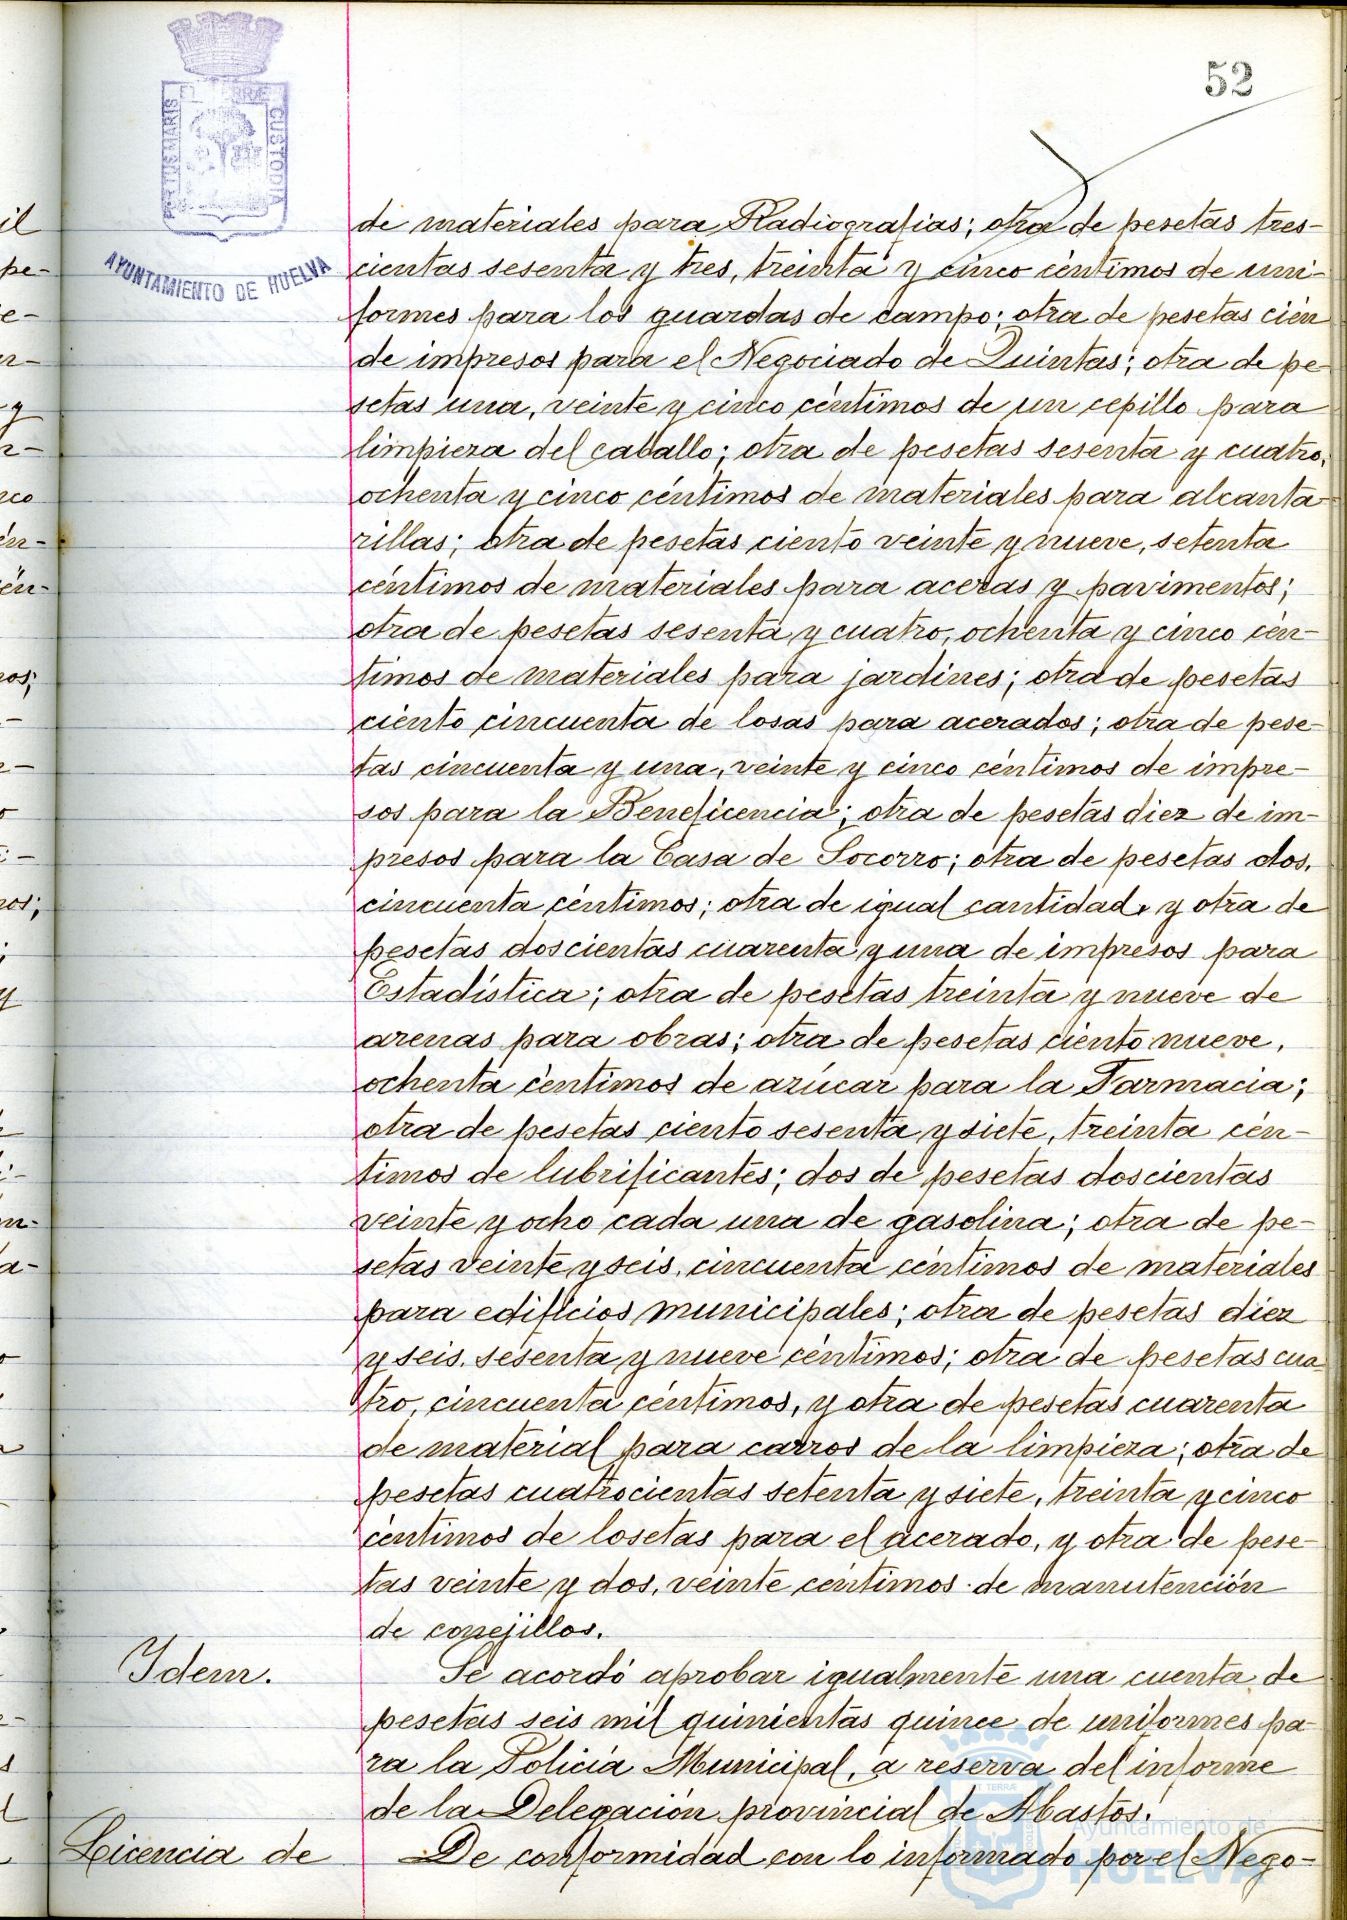 52
PORTUS MARIS ET TERRÆ CUSTODIA
AYUNTAMIENTO DE HUELVA
de materiales para Radiografias; otra de pesetas tres-
cientas sesenta y tres, treinta y cinco céntimos de uni-
formes para los guardas de campo; otra de pesetas cién
de impresos para el Negociado de Quintas; otra de pe-
setas una, veinte y cinco céntimos de un cepillo para
limpieza del caballo; otra de pesetas sesenta y cuatro,
ochenta y cinco céntimos de materiales para alcanta-
rillas; otra de pesetas ciento veinte y nueve, setenta
céntimos de materiales para aceras y pavimentos;
otra de pesetas sesenta y cuatro, ochenta y cinco cén-
timos de materiales para jardines; otra de pesetas
ciento cincuenta de losas para acerados; otra de pese-
tas cincuenta y una, veinte y cinco céntimos de impre-
sos para la Beneficencia; otra de pesetas diez de im-
presos para la Casa de Socorro; otra de pesetas dos,
cincuenta céntimos; otra de igual cantidad, y otra de
pesetas doscientas cuarenta y una de impresos para
Estadística; otra de pesetas treinta y nueve de
arenas para obras; otra de pesetas ciento nueve,
ochenta céntimos de azúcar para la Farmacia;
otra de pesetas ciento sesenta y siete, treinta cén-
timos de lubrificantes; dos de pesetas doscientas
veinte y ocho cada una de gasolina; otra de pe-
setas veinte y seis, cincuenta céntimos de materiales
para edificios municipales; otra de pesetas diez
y seis, sesenta y nueve céntimos; otra de pesetas cua-
tro, cincuenta céntimos, y otra de pesetas cuarenta
de material para carros de la limpieza; otra de
pesetas cuatrocientas setenta y siete, treinta y cinco
céntimos de losetas para el acerado, y otra de pese-
tas veinte y dos, veinte céntimos de manutención
de conejillos.
Idem. Se acordó aprobar igualmente una cuenta de
pesetas seis mil quinientas quince de uniformes pa-
ra la Policía Municipal, a reserva del informe
de la Delegación provincial de Abastos.
Licencia de De conformidad con lo informado por el Nego-
Ayuntamiento de
HUELVA